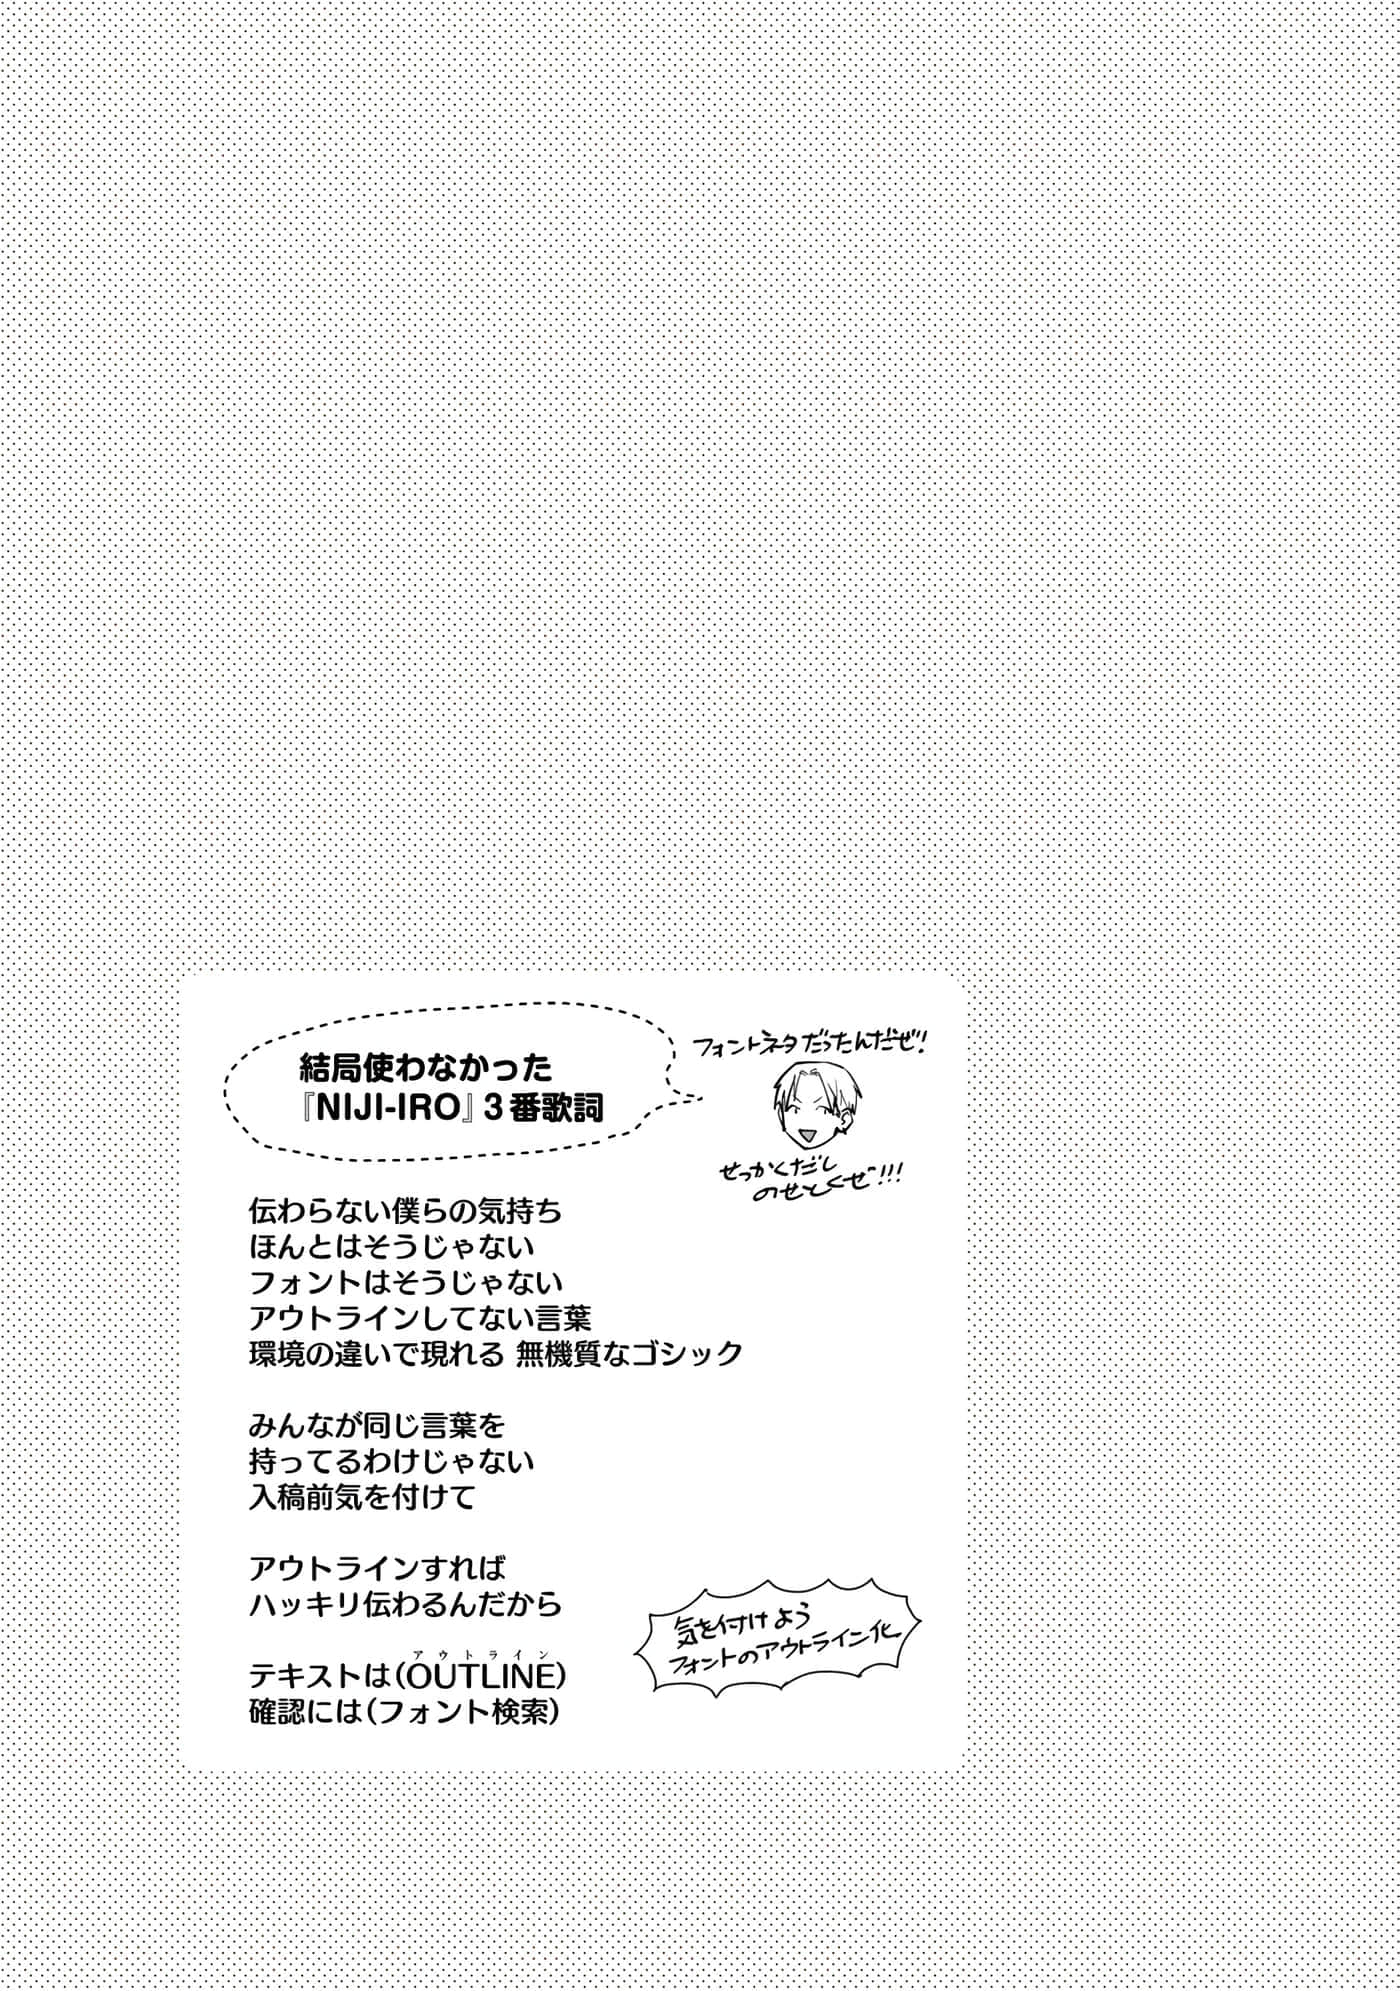 結局使わなかった
『NIJI-IRO』３番歌詞
フォントネタだったんだぜ!
せっかくだし
のせとくぜ!!!
伝わらない僕らの気持ち
ほんとはそうじゃない
フォントはそうじゃない
アウトラインしてない言葉
環境の違いで現れる 無機質なゴシック
みんなが同じ言葉を
持ってるわけじゃない
入稿前気を付けて
アウトラインすれば
ハッキリ伝わるんだから
アウトライン
テキストは(OUTLINE)
確認には(フォント検索)
気を付けよう
フォントのアウトライン化